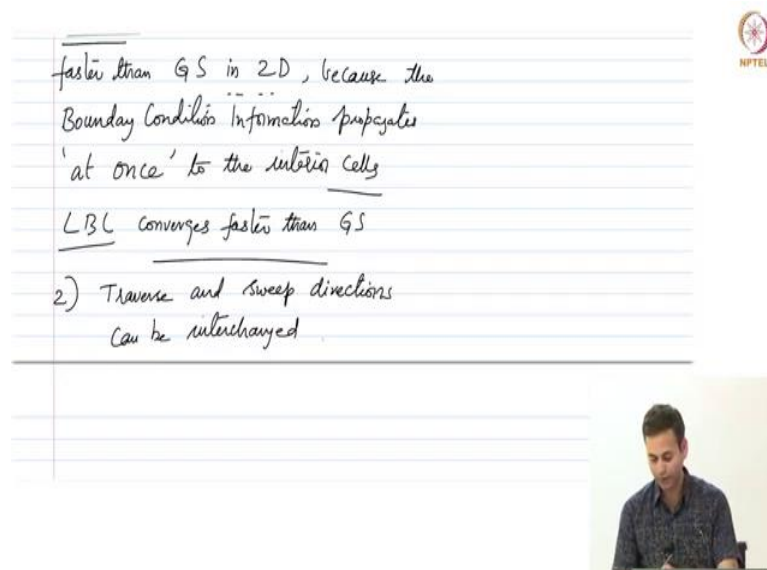 faster than GS in 2D, because the
Bounday Condition Information propagates
'at once' to the interior cells
LBL converges faster than GS
2) Traverse and sweep directions
can be interchanged.
NPTEL